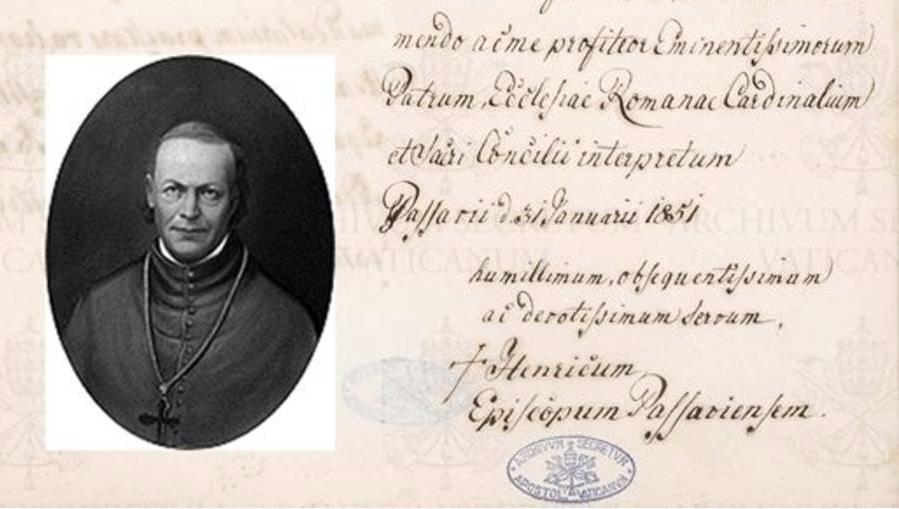 mendo ac me profiteor Eminentissimorum
Patrum, Ecclesiae Romanae Cardinalium
et Sacri Concilii interpretum
Passavii d. 31 Januarii 1851
humillimum, obsequentissimum
ac devotissimum servum,
† Henricum
Episcopum Passaviensem.
ARCHIVVM SECRETVM
APOSTOL. VATICANVM
ARCHIVUM SE
VATICANUM